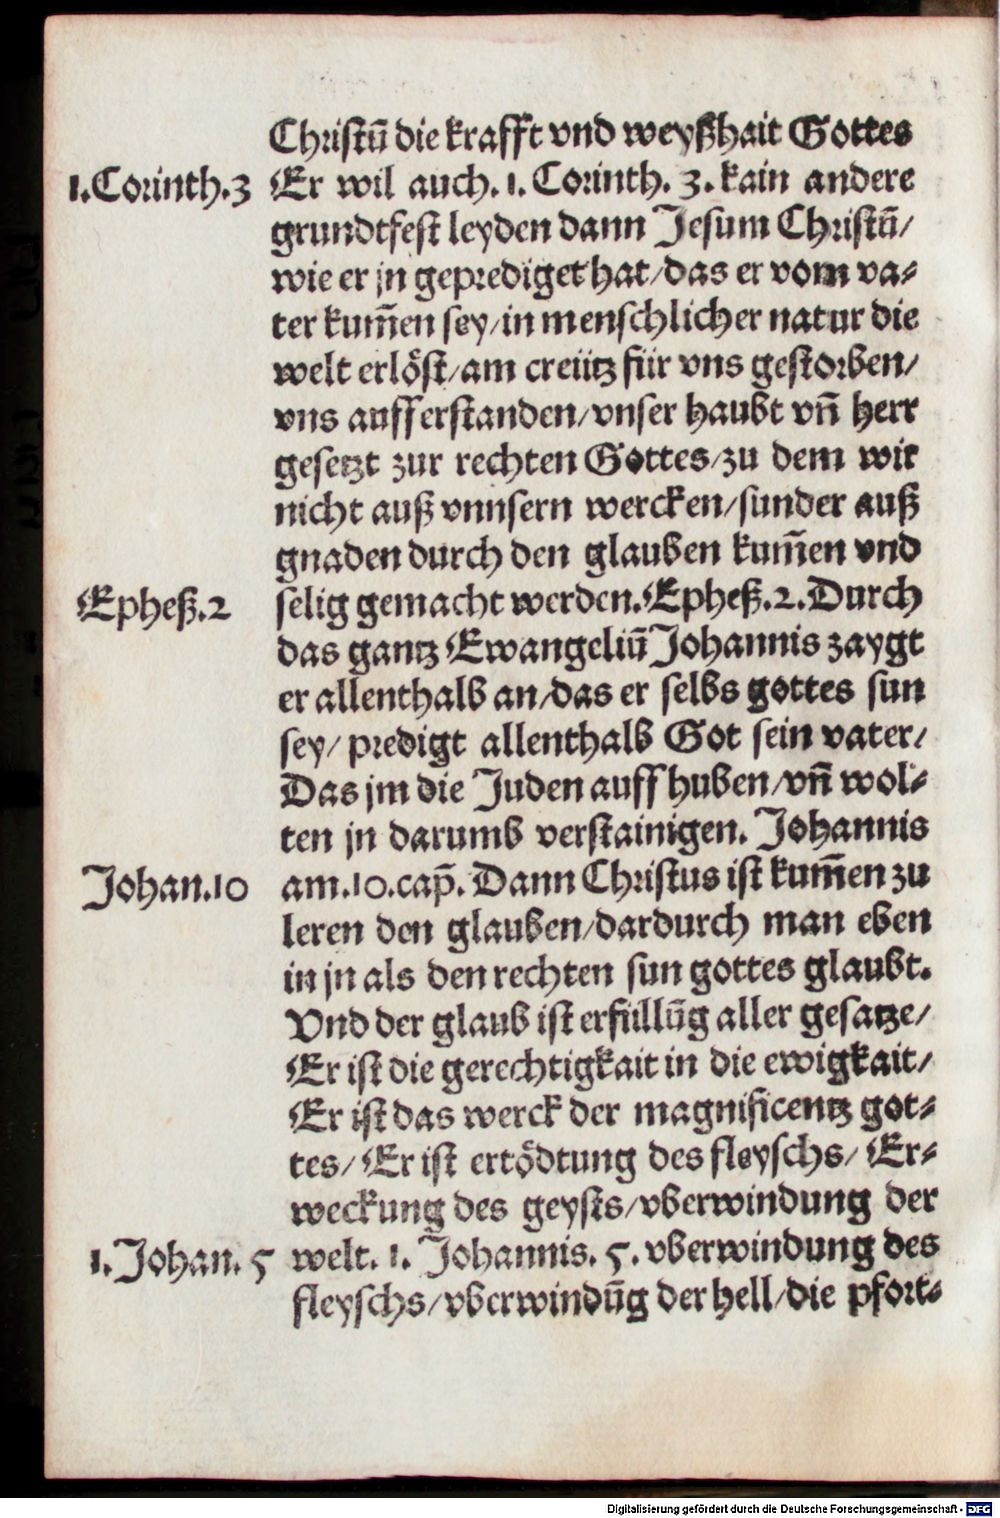 Christū die krafft vnd weyßhait Gottes
1.Corinth.3 Er wil auch. 1. Corinth. 3. kain andere
grundtfest leyden dann Jesum Christū/
wie er jn geprediget hat/das er vom va⸗
ter kum̄en sey/in menschlicher natur die
welt erlöst/am creütz für vns gestorben/
vns aufferstanden/vnser haubt vn̄ herr
gesetzt zur rechten Gottes/zu dem wir
nicht auß vnnsern wercken/sunder auß
gnaden durch den glauben kum̄en vnd
Epheß.2 selig gemacht werden.Epheß.2.Durch
das gantz Ewangeliū Johannis zaygt
er allenthalb an/das er selbs gottes sun
sey/ predigt allenthalb Got sein vater/
Das jm die Juden auff huben/vn̄ wol⸗
ten jn darumb verstainigen. Johannis
Johan.10 am.10.cap̄. Dann Christus ist kum̄en zu
leren den glauben/dardurch man eben
in jn als den rechten sun gottes glaubt.
Vnd der glaub ist erfüllūg aller gesatze/
Er ist die gerechtigkait in die ewigkait/
Er ist das werck der magnificentz got⸗
tes/ Er ist ertödtung des fleyschs/ Er⸗
weckung des geysts/vberwindung der
1.Johan. 5 welt. 1. Johannis. 5. vberwindung des
fleyschs/vberwindūg der hell/die pfort⸗
Digitalisierung gefördert durch die Deutsche Forschungsgemeinschaft - DFG